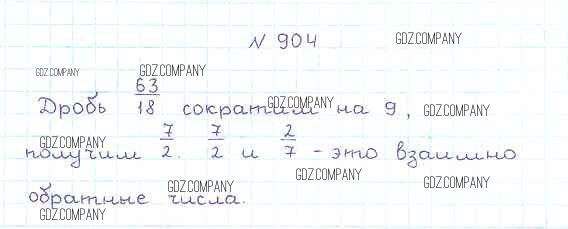 № 904
GDZ.COMPANY
GDZ.COMPANY GDZ.COMPANY
Дробь 63/18 сократим на 9,
GDZ.COMPANY GDZ.COMPANY
GDZ.COMPANY
получим 7/2. 7/2 и 2/7 - это взаимно
GDZ.COMPANY GDZ.COMPANY GDZ.COMPANY
обратные числа.
GDZ.COMPANY